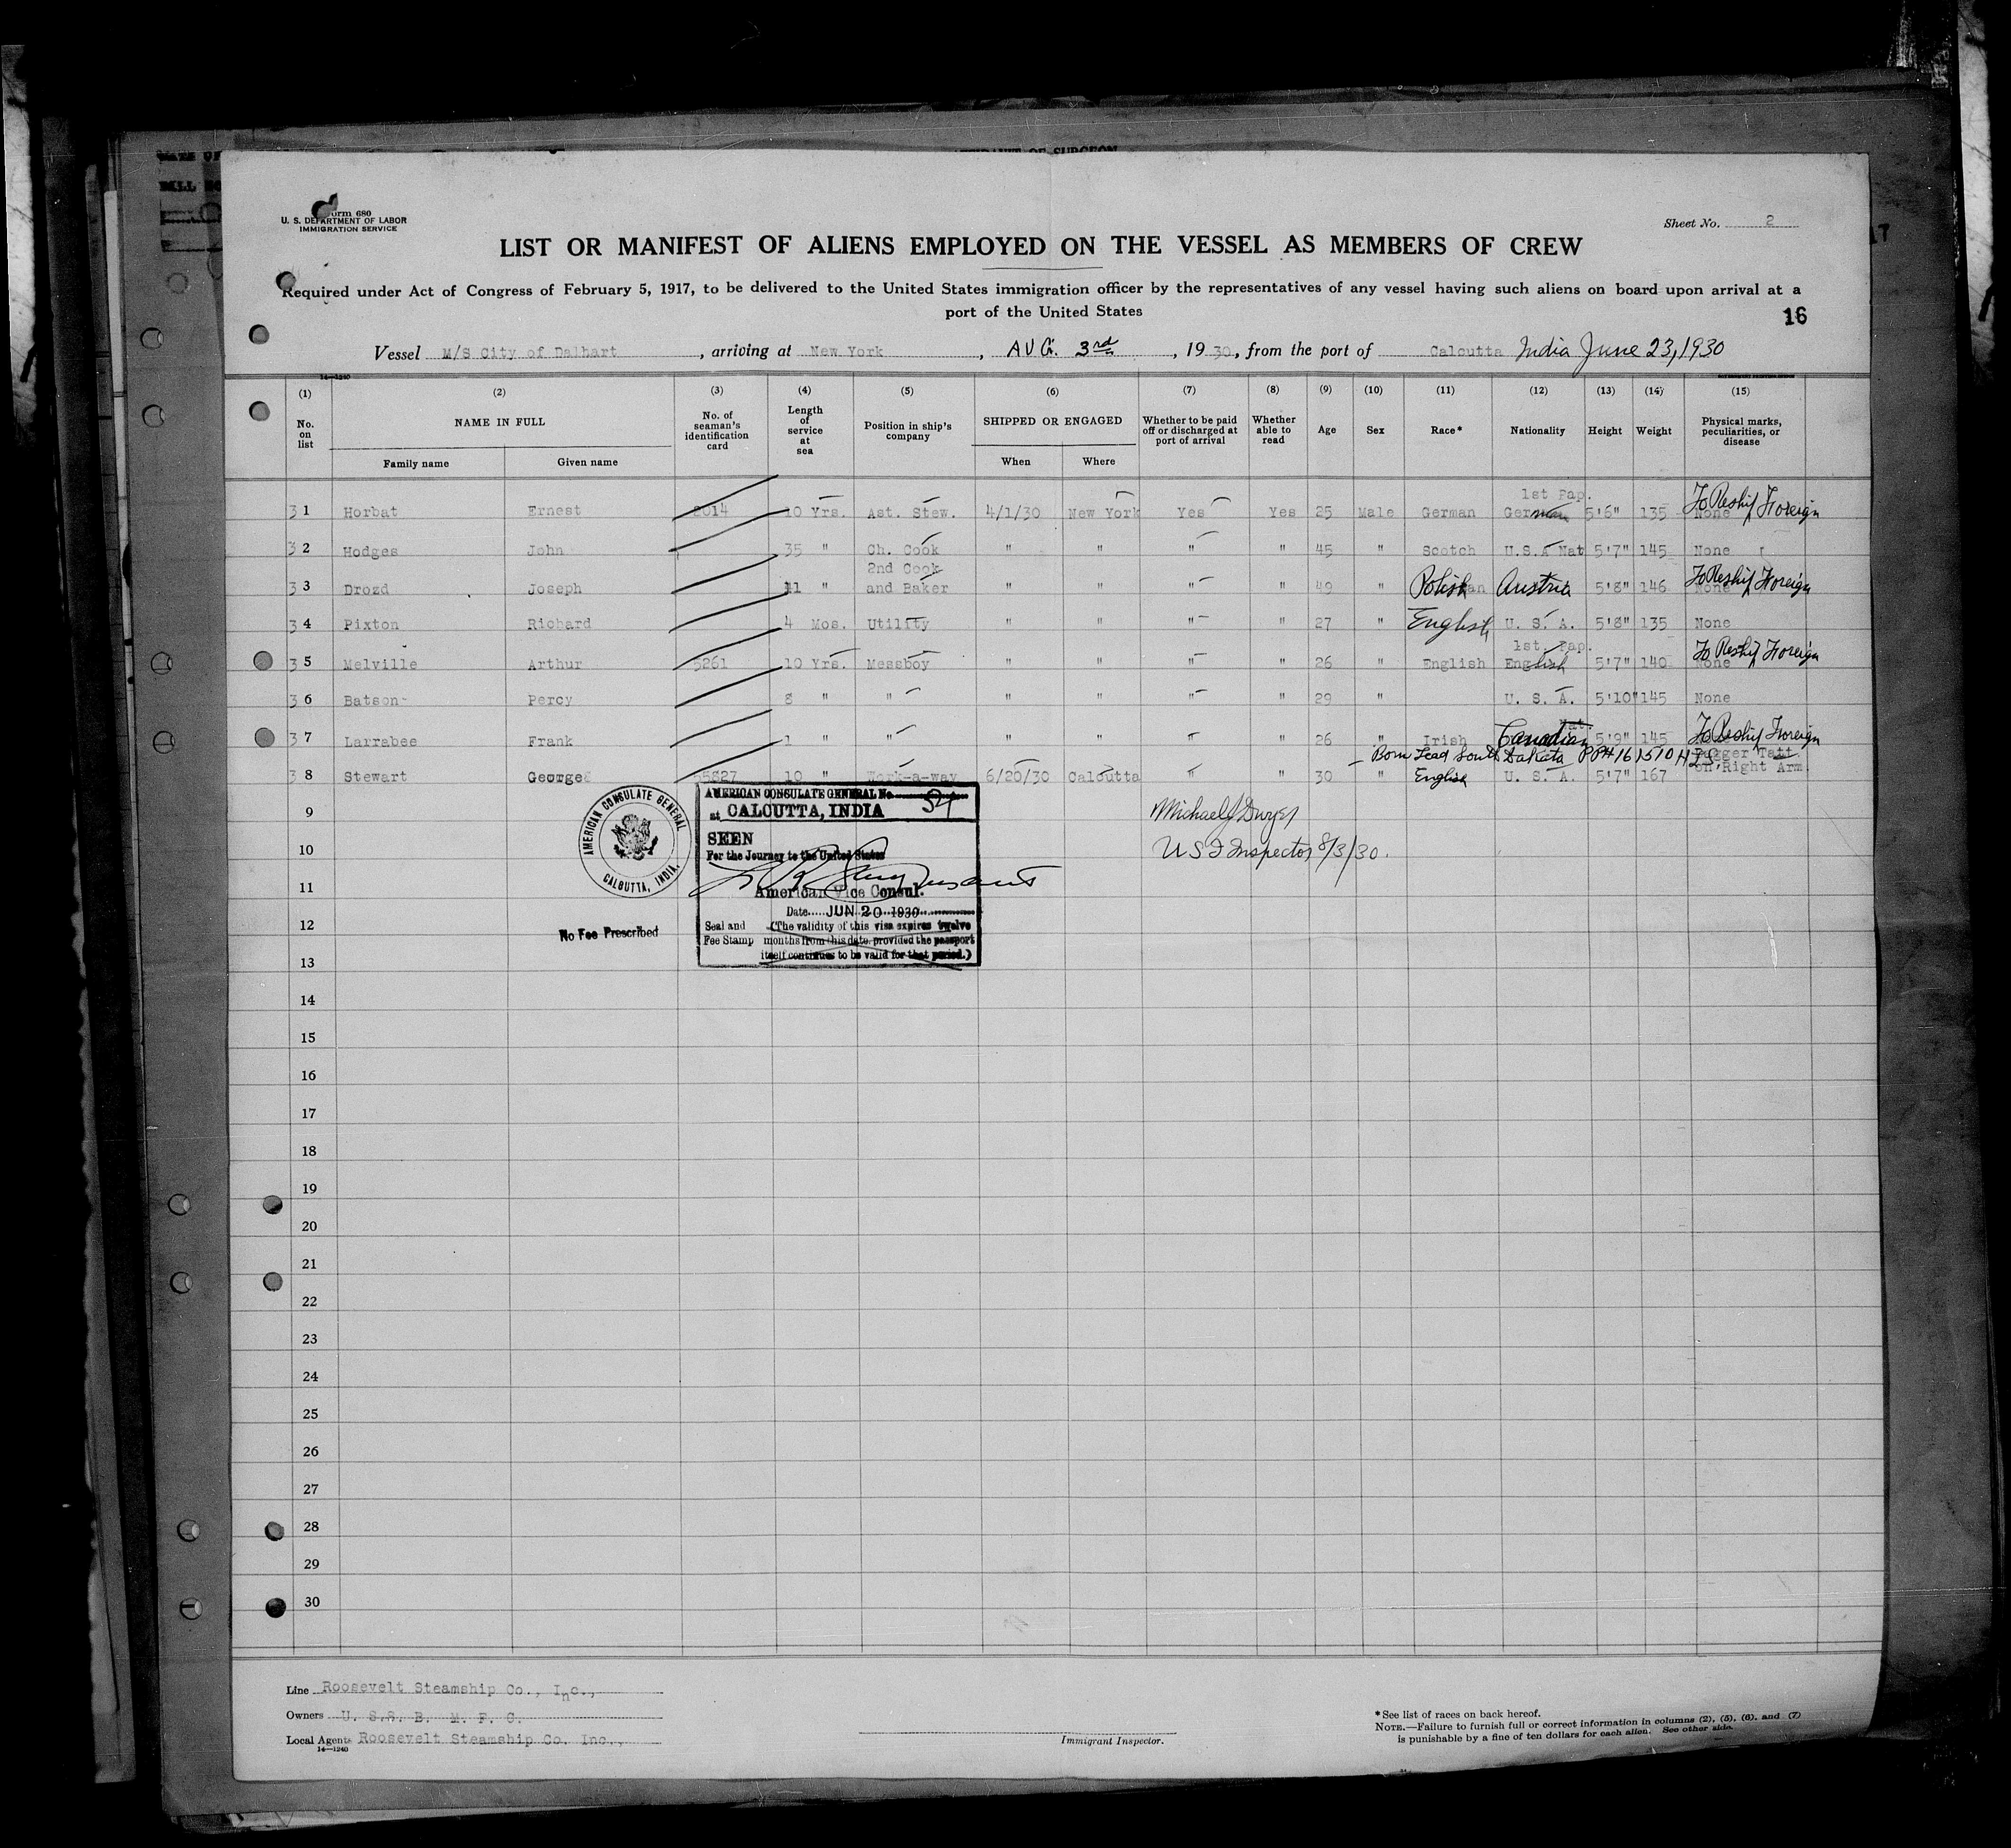 AFFIDAVIT OF SURGEON
Form 680
U. S. DEPARTMENT OF LABOR
IMMIGRATION SERVICE
Sheet No. 2
LIST OR MANIFEST OF ALIENS EMPLOYED ON THE VESSEL AS MEMBERS OF CREW
Required under Act of Congress of February 5, 1917, to be delivered to the United States immigration officer by the representatives of any vessel having such aliens on board upon arrival at a
port of the United States
16
Vessel M/S City of Dalhart, arriving at New York, AUG. 3rd, 1930, from the port of Calcutta India June 23, 1930
14-1240
(1) (2) (3) (4) (5) (6) (7) (8) (9) (10) (11) (12) (13) (14) (15)
No. on list NAME IN FULL No. of seaman's identification card Length of service at sea Position in ship's company SHIPPED OR ENGAGED Whether to be paid off or discharged at port of arrival Whether able to read Age Sex Race* Nationality Height Weight Physical marks, peculiarities, or disease
Family name Given name When Where
1st Pap.
31 Horbat Ernest 2014 10 Yrs. Ast. Stew. 4/1/30 New York Yes Yes 25 Male German German 5'6" 135 None To Reship Foreign
32 Hodges John 35 " Ch. Cook " " " " 45 " Scotch U.S.A Nat 5'7" 145 None
2nd Cook
33 Drozd Joseph 11 " and Baker " " " " 49 " Polish Austria 5'8" 146 None To Reship Foreign
34 Pixton Richard 4 Mos. Utility " " " " 27 " English U. S. A. 5'8" 135 None
1st. Pap.
35 Melville Arthur 5261 10 Yrs. Messboy " " " " 26 " English English 5'7" 140 None To Reship Foreign
36 Batson Percy 8 " " " " " " 29 " U. S. A. 5'10" 145 None
Nat.
37 Larrabee Frank 1 " " " " " " 26 " Irish Canadian 5'9" 145 To Reship Foreign
Born Lead South Dakota PP# 161510 Dagger Tatt
38 Stewart George 55827 10 " Work-a-way 6/20/30 Calcutta " " 30 " English U. S. A. 5'7" 167 on Right Arm
9
10
11
12
13
14
15
16
17
18
19
20
21
22
23
24
25
26
27
28
29
30
AMERICAN CONSULATE GENERAL
CALCUTTA, INDIA.
No Fee Prescribed
AMERICAN CONSULATE GENERAL No.
at CALCUTTA, INDIA
SEEN
For the Journey to the United States
American Vice Consul.
Date JUN 20 1930
Seal and (The validity of this visa expires twelve
Fee Stamp months from this date, provided the passport
itself continues to be valid for that period.)
Michael J Dwyer
U S I Inspector 8/3/30.
Line Roosevelt Steamship Co., Inc.,
Owners U. S.S. B. M. F. C.
Local Agents Roosevelt Steamship Co. Inc.,
14-1240
Immigrant Inspector.
*See list of races on back hereof.
NOTE.—Failure to furnish full or correct information in columns (2), (5), (6), and (7)
is punishable by a fine of ten dollars for each alien. See other side.